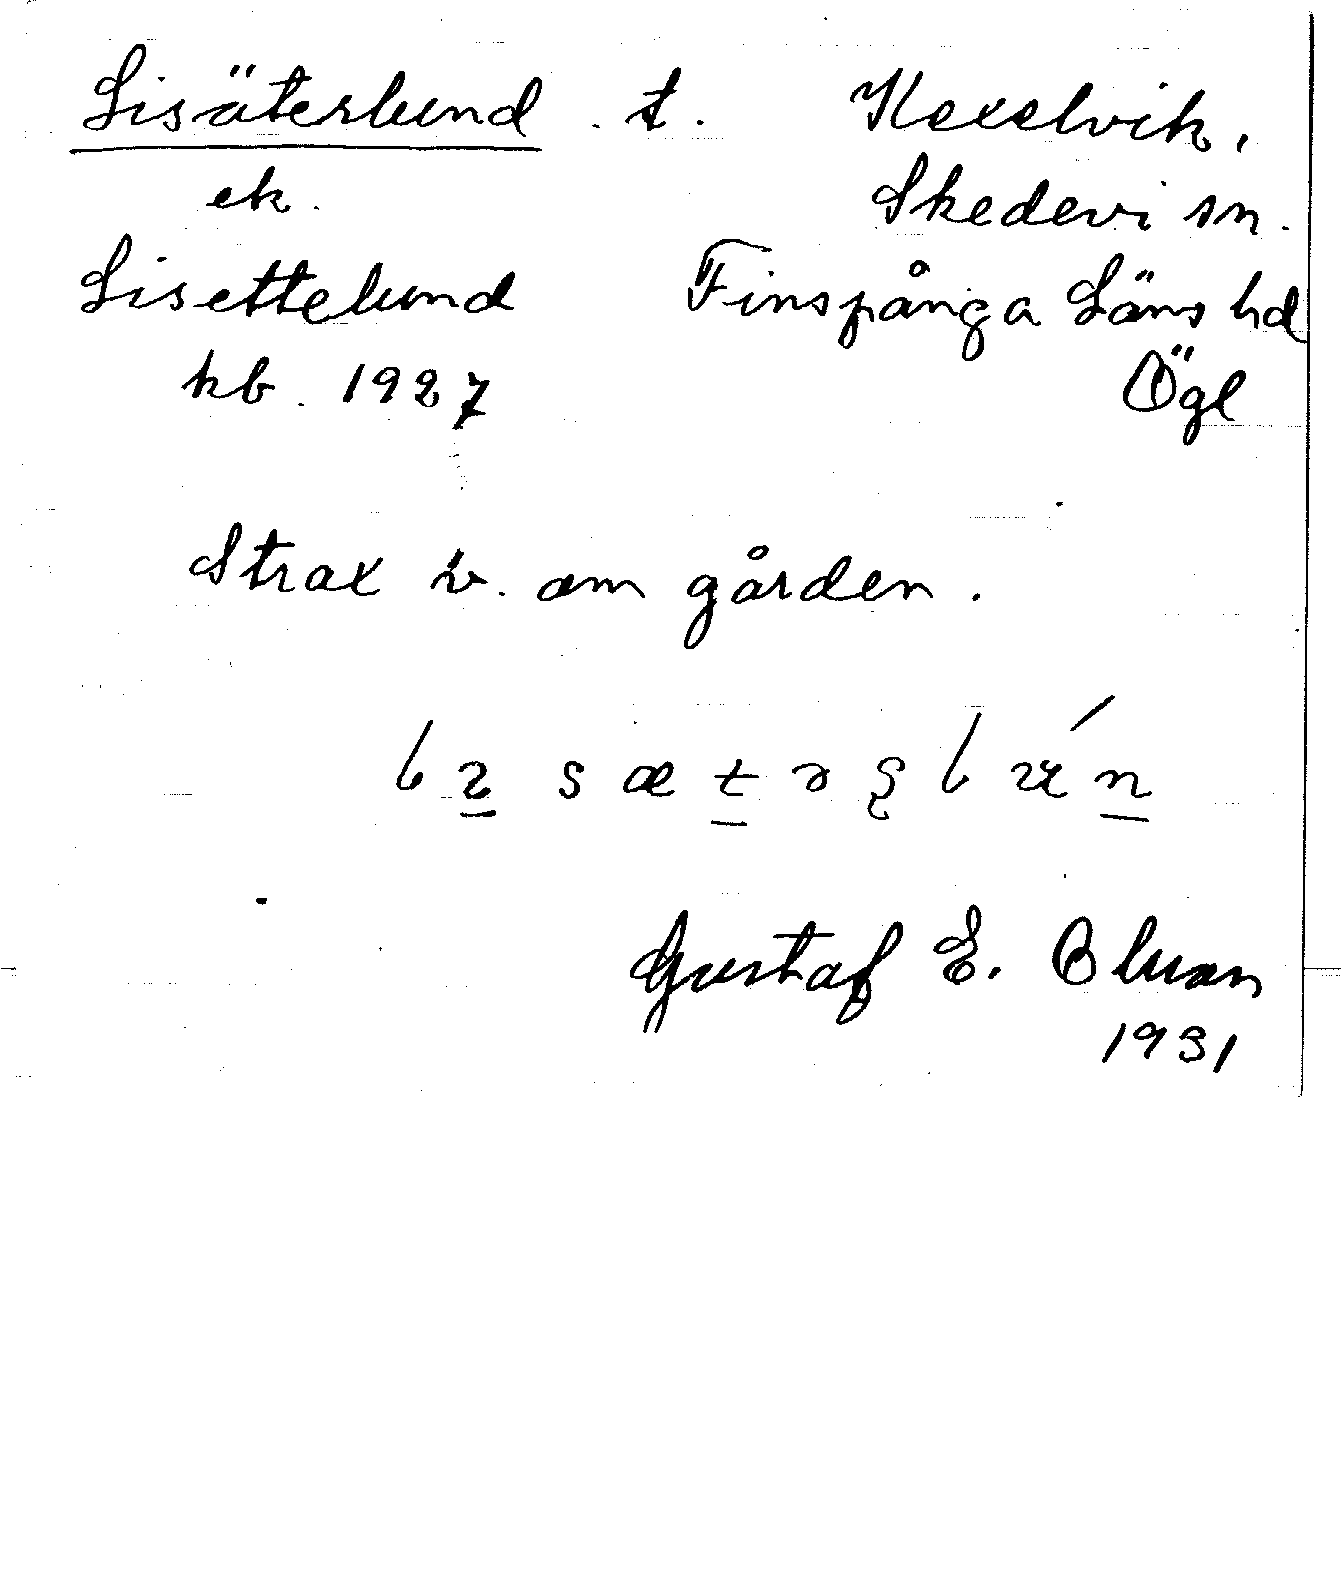 Lisäterlund . t. Kexelvik,
ek. Skedevi sn.
Lisettelund Finspånga Läns hd
kb. 1927 Ögl
Strax v. om gården.
Gustaf E. Bluan
1931